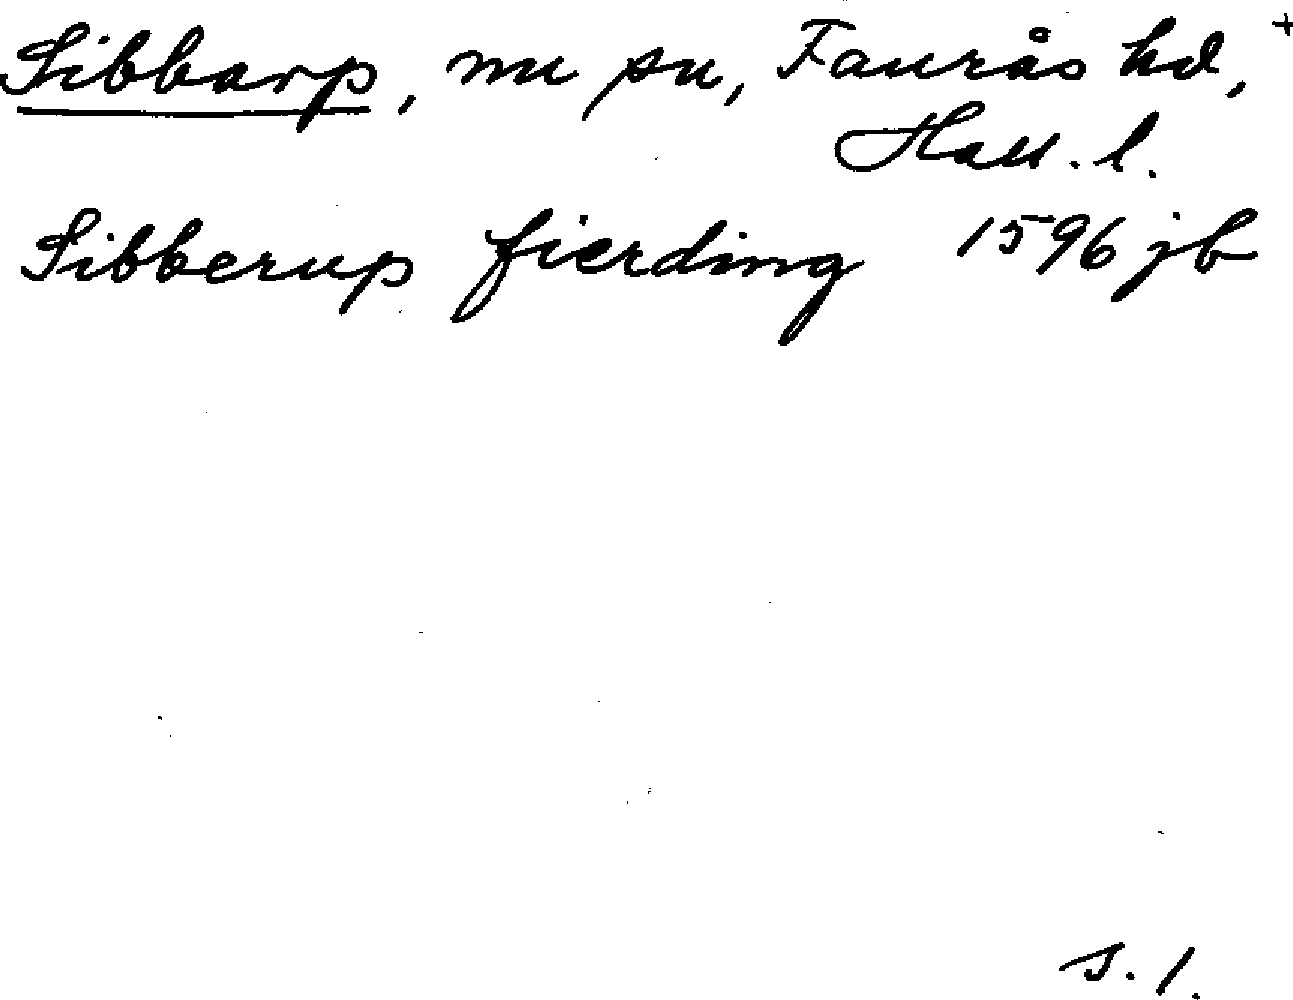 Sibbarp, nu sn, Faurås hd, +
Hall. l.
Sibberup fierding 1596 jb
s. 1.